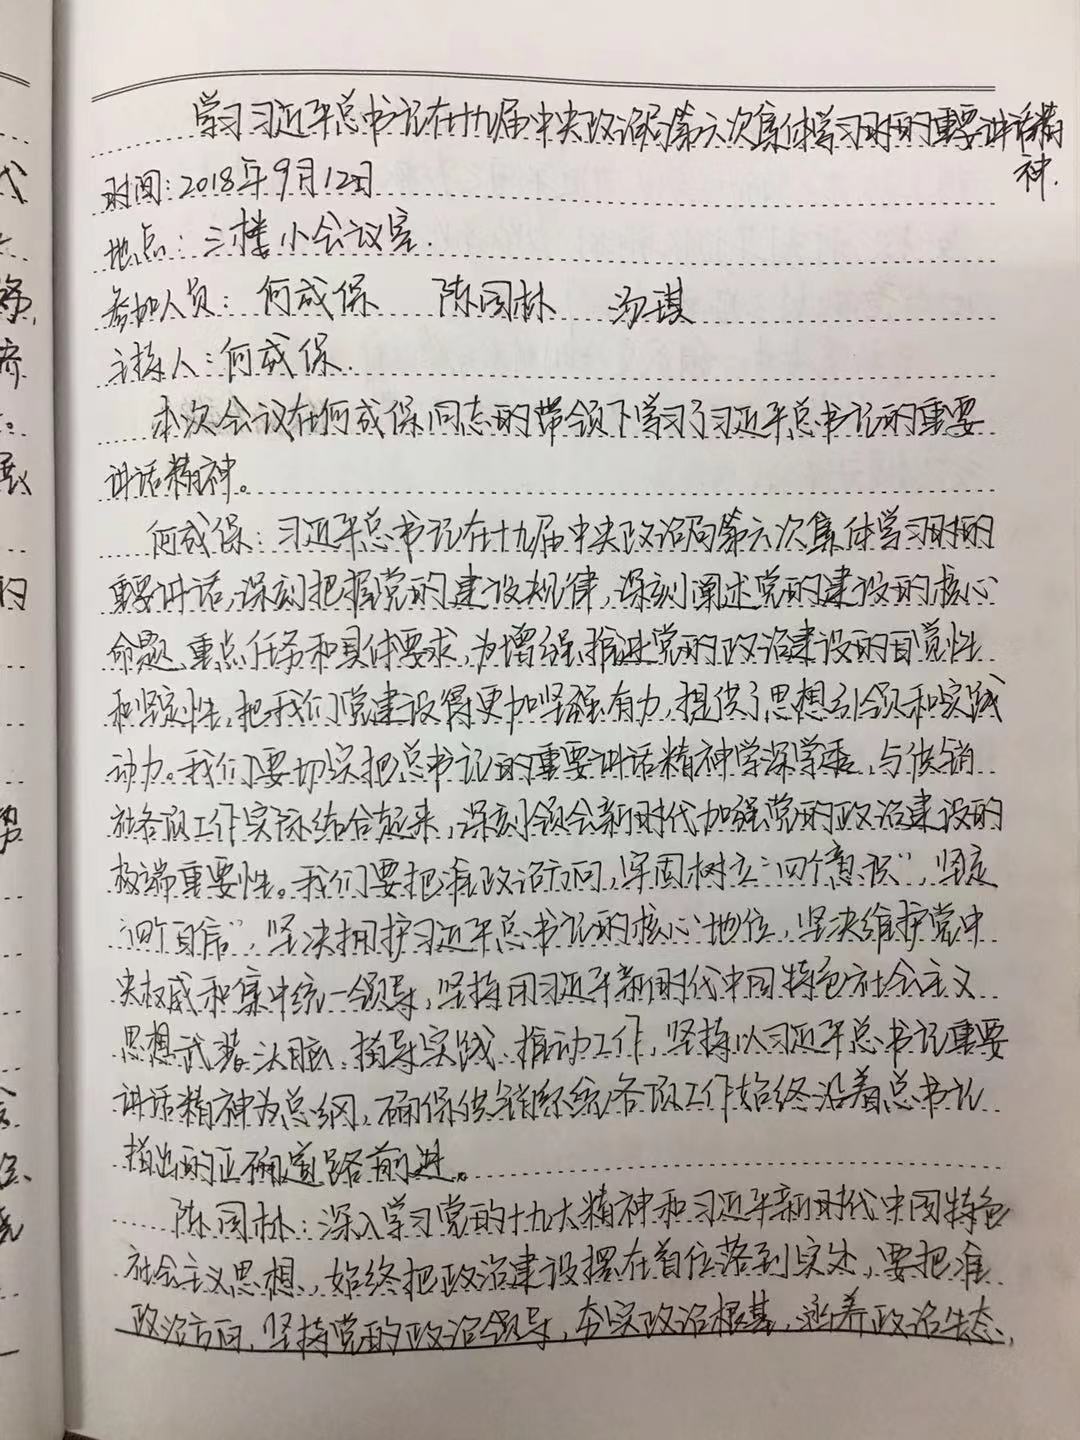 学习习近平总书记在十九届中央政治局第六次集体学习时的重要讲话精
神.
时间:2018年9月12日
地点:三楼小会议室.
参加人员:何成保 陈国林 汤琪
主持人:何成保.
本次会议在何成保同志的带领下学习了习近平总书记的重要
讲话精神。
何成保:习近平总书记在十九届中央政治局第六次集体学习时的
重要讲话,深刻把握党的建设规律,深刻阐述党的建设的核心
命题、重点任务和具体要求,为增强推进党的政治建设的自觉性
和坚定性,把我们党建设得更加坚强有力,提供了思想引领和实践
动力。我们要切实把总书记的重要讲话精神学深学透,与供销
社各项工作实际结合起来,深刻领会新时代加强党的政治建设的
极端重要性。我们要把准政治方向,牢固树立“四个意识”,坚定
“四个自信”,坚决拥护习近平总书记的核心地位,坚决维护党中
央权威和集中统一领导,坚持用习近平新时代中国特色社会主义
思想武装头脑、指导实践、推动工作,坚持以习近平总书记重要
讲话精神为总纲,确保供销系统各项工作始终沿着总书记
指出的正确道路前进。
陈国林:深入学习党的十九大精神和习近平新时代中国特色
社会主义思想,始终把政治建设摆在首位落到实处,要把准
政治方向,坚持党的政治领导,夯实政治根基,涵养政治生态,